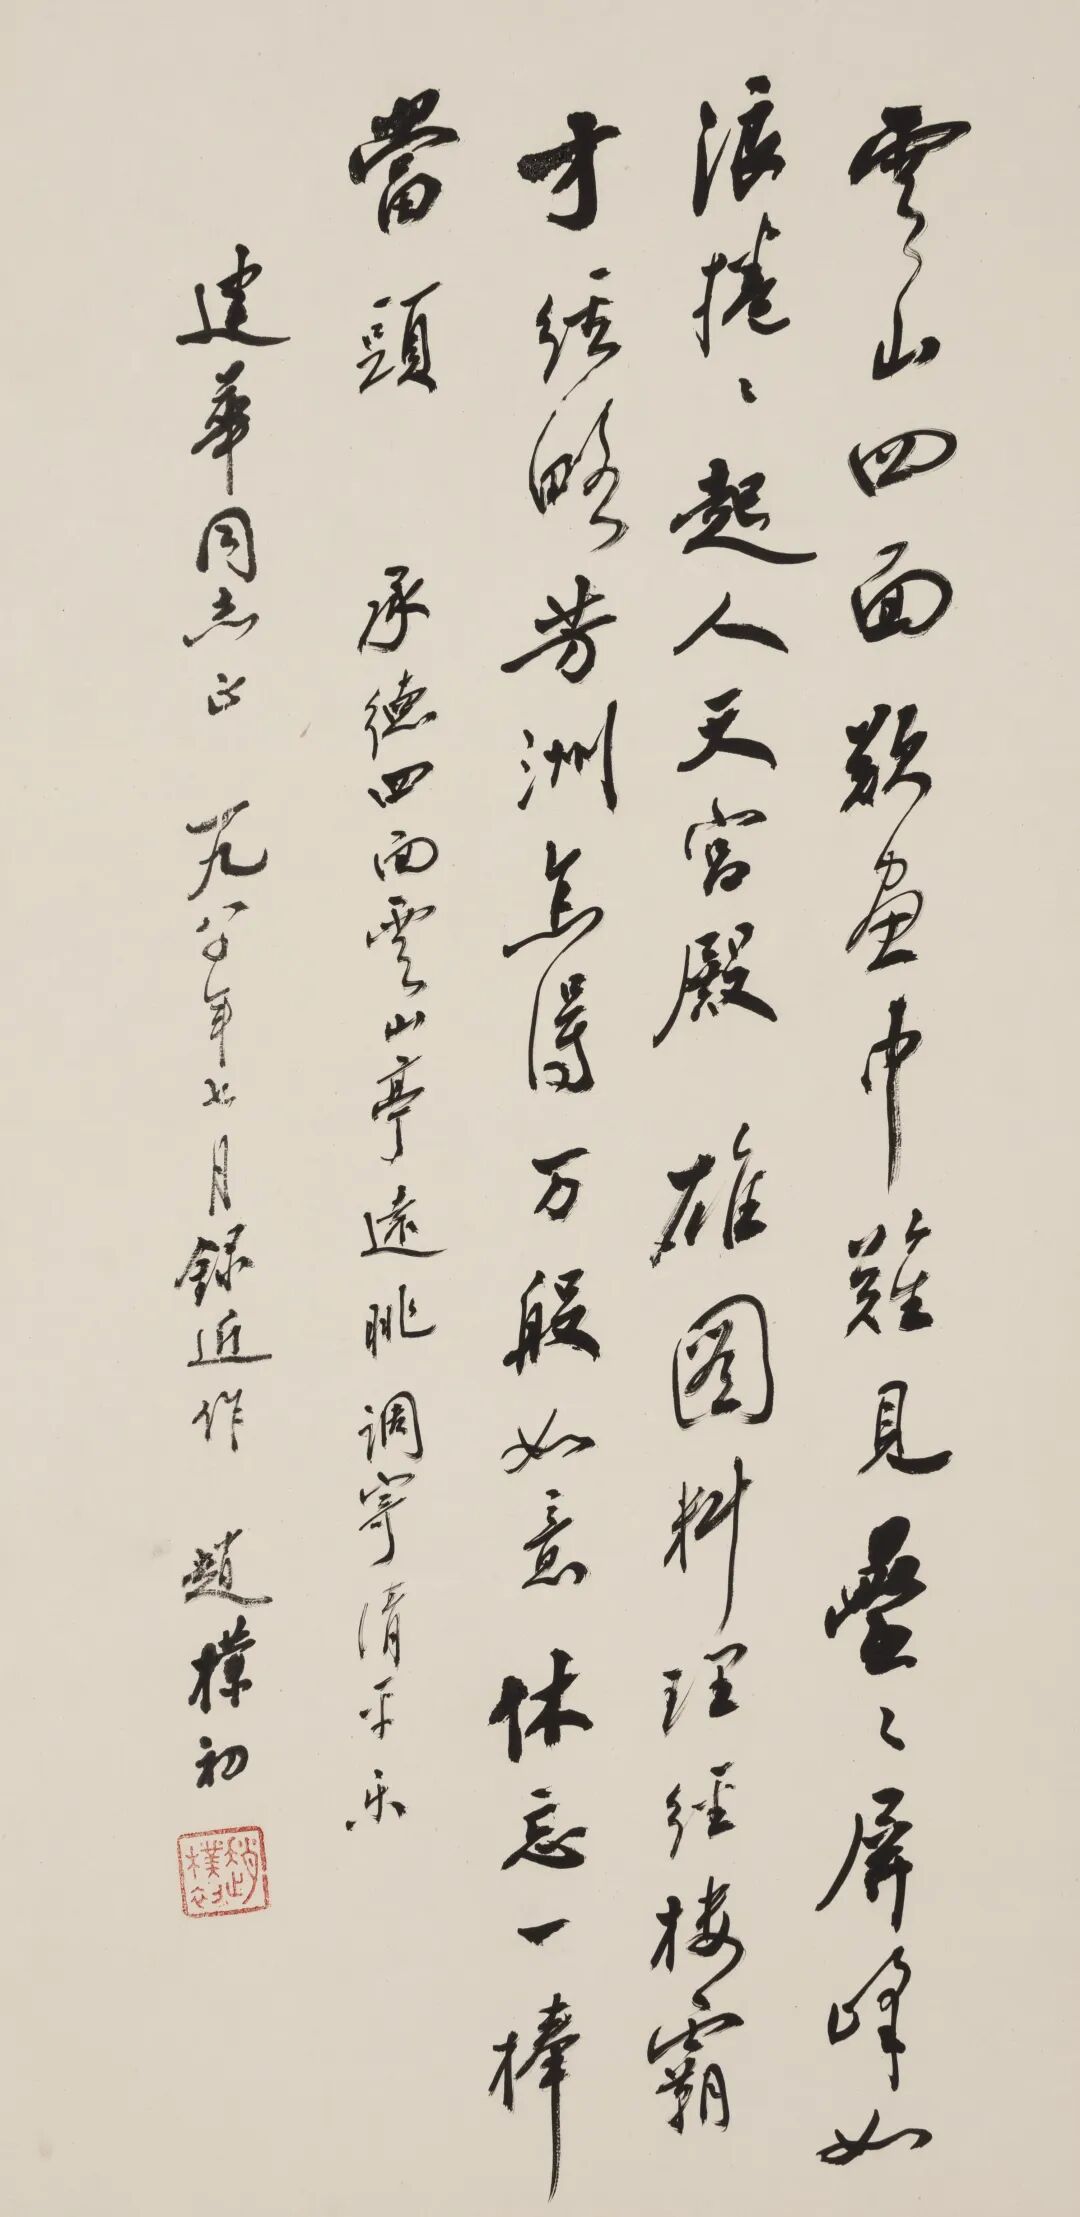 雲山四面歎畫中難見疊〻屏峰如
浪捲〻起人天宮殿 雄圖料理經樓霸
才經略芳洲怎得万般如意休忘一棒
當頭 承德四面雲山亭遠眺調寄清平乐
建華同志正 一九八〇年七月錄近作 趙樸初
趙樸初